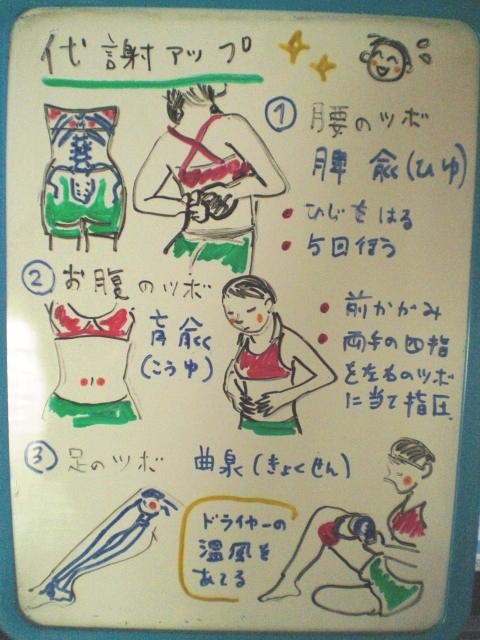 代謝アップ
① 腰のツボ
脾兪(ひゆ)
ひじをはる
5回行う
② お腹のツボ
肓兪
(こうゆ)
前かがみ
両手の四指
を左右のツボ
に当て指圧
③ 足のツボ 曲泉(きょくせん)
ドライヤーの
温風を
あてる